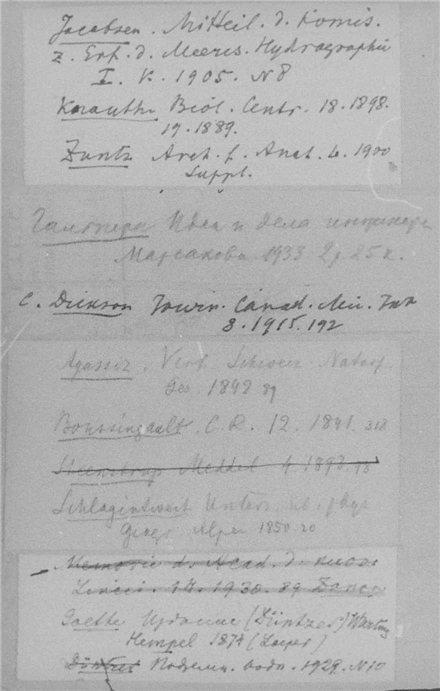 Jacobsen. Mitteil. d. Komis.
z. Erf. d. Meeres. Hydrographie
I. K. 1905. N 8
Knauthe Biol. Centr. 18. 1898.
19. 1889.
Zuntz Arch. f. Anat. 4. 1900
Suppl.
Гальперн Идеи и дела инженера
1933 2 р. 25 к.
C. Dickson Journ. Canad. Min. Inst
8. 1915. 192
Agassiz. Verh. Schweiz. Naturf.
Ges. 1842. 89
Boussingault. C. R. 12. 1841. 318
Steenstrup Meddel 4. 1893. 98
Schlagintweit Unters. üb. phys.
Geogr. Alpen 1850. 20
Memorie d. Acad. d.
Lincei. 14. 1930. 89
Goethe (Düntzer)
Hempel 1874 (Loeper)
водн. 1929. N 10